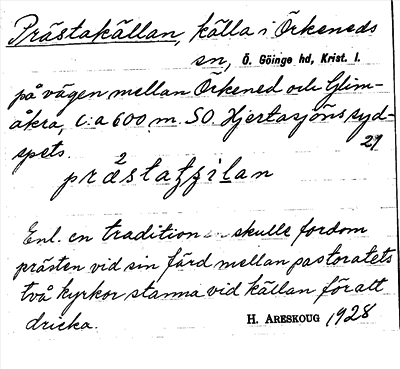 Prästakällan, källa i Örkeneds
sn, Ö. Göinge hd, Krist. l.
på vägen mellan Örkened och Glim-
åkra, c:a 600 m. SO. Hjertasjöns syd-
spets. 21
Enl. en tradition skulle fordom
prästen vid sin färd mellan pastoratets
två kyrkor stanna vid källan för att
dricka.
H. ARESKOUG 1928